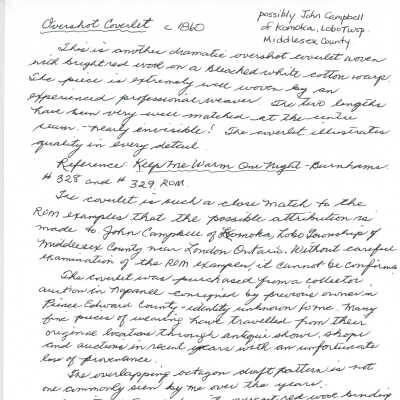 Overshot Coverlet c 1860
possibly John Campbell
of Komoka, Lobo Twp.
Middlesex County
This is another dramatic overshot coverlet woven
with bright red wool on a bleached white cotton warp.
The piece is extremely well woven by an
experienced professional weaver. The two lengths
have been very well matched at the centre
seam - nearly envisible! The coverlet illustrates
quality in every detail.
Reference Keep Me Warm One Night - Burnhams.
# 328 and # 329 ROM.
The coverlet is such a close match to the
ROM examples that the possible attribution is
made to John Campbell of Komoka, Lobo Township of
Middlesex County near London Ontario. Without careful
examination of the ROM examples, it cannot be confirme
The coverlet was purchased from a collector
auction in Napanee consigned by previous owner in
Prince Edward County - identity unknown to me. Many
fine pieces of weaving have travelled from their
original location through antique shows, shops
and auctions in recent years with an unfortunate
loss of provenance.
The overlapping octagon draft pattern is not
one commonly seen by me over the years.
red wool binding